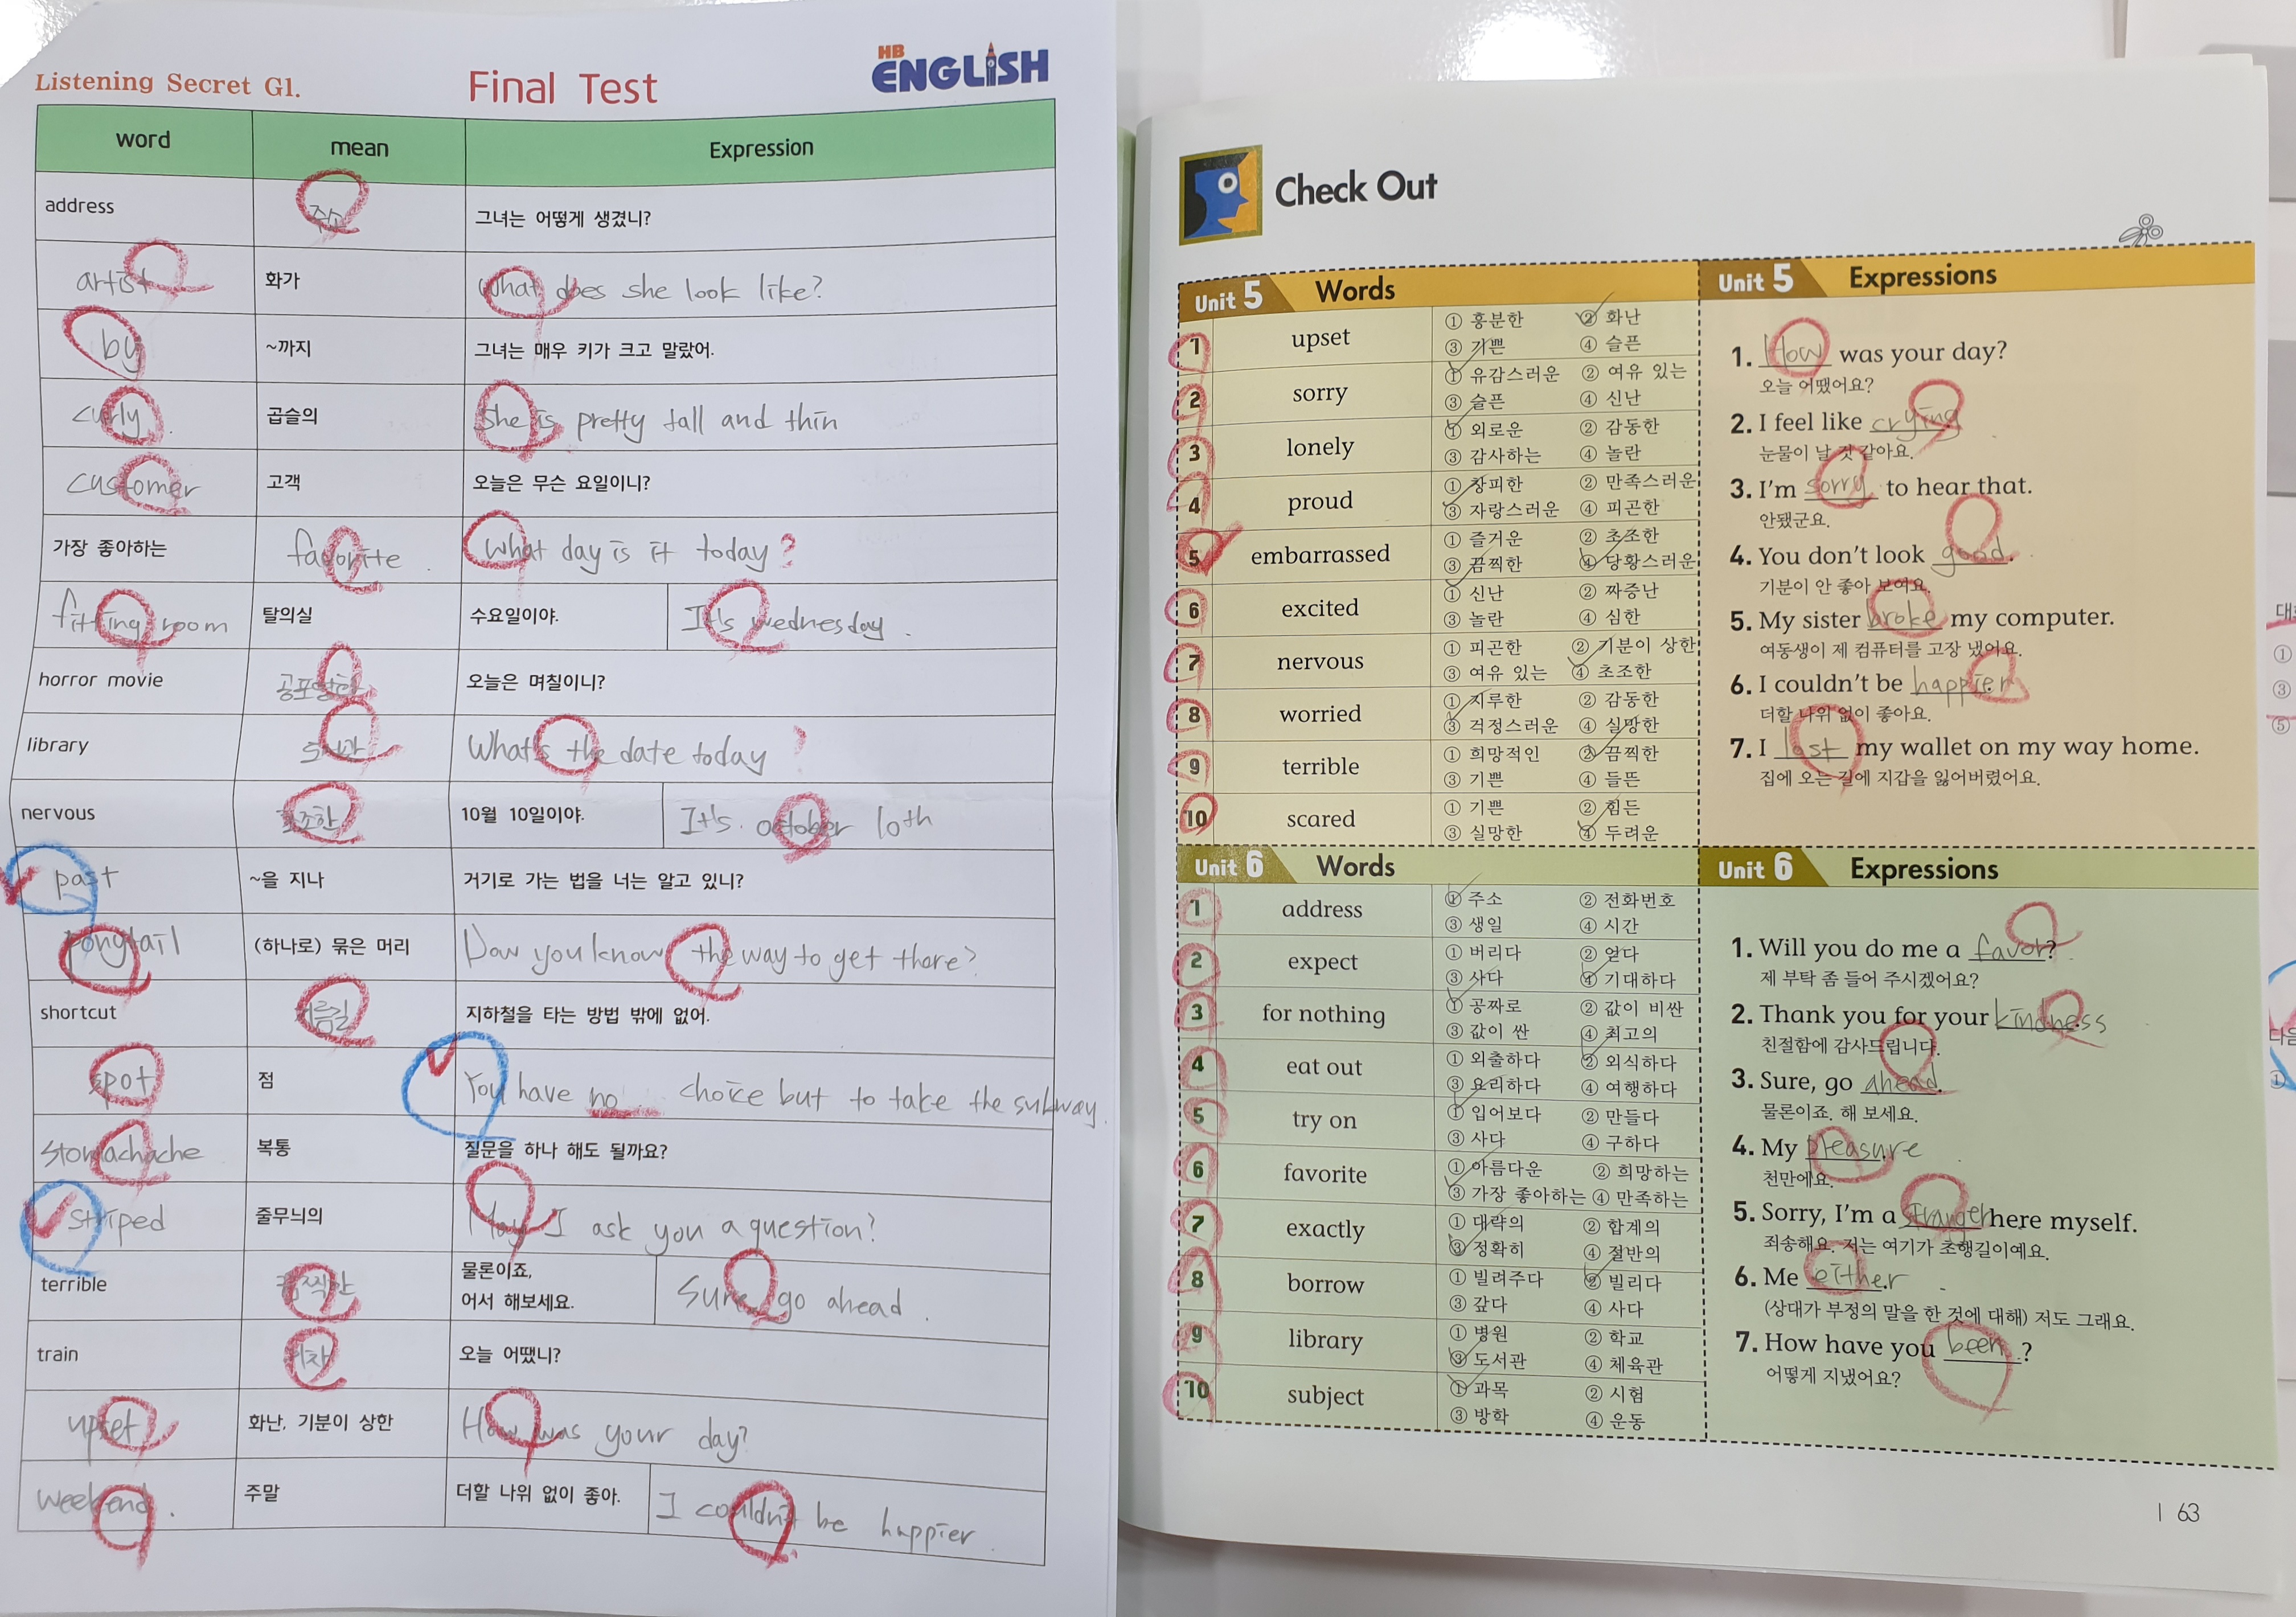 Listening Secret G1.
Final Test
HB
ENGLISH
word
mean
Expression
address
주소
그녀는 어떻게 생겼니?
artist
화가
What does she look like?
by
~까지
그녀는 매우 키가 크고 말랐어.
curly
곱슬의
She is pretty tall and thin
customer
고객
오늘은 무슨 요일이니?
가장 좋아하는
favorite
What day is it today?
fitting room
탈의실
수요일이야.
It's wednesday.
horror movie
공포영화
오늘은 며칠이니?
library
도서관
What's the date today?
nervous
초조한
10월 10일이야.
It's october 10th
past
~을 지나
거기로 가는 법을 너는 알고 있니?
ponytail
(하나로) 묶은 머리
Dow you know the way to get there?
shortcut
지름길
지하철을 타는 방법 밖에 없어.
spot
점
You have no choice but to take the subway.
stomachache
복통
질문을 하나 해도 될까요?
striped
줄무늬의
May I ask you a question?
terrible
끔찍한
물론이죠,
어서 해보세요.
Sure, go ahead.
train
기차
오늘 어땠니?
upset
화난, 기분이 상한
How was your day?
weekend.
주말
더할 나위 없이 좋아.
I couldn't be happier.
Check Out
Unit 5 Words
1 upset ① 흥분한 ② 화난
③ 기쁜 ④ 슬픈
2 sorry ① 유감스러운 ② 여유 있는
③ 슬픈 ④ 신난
3 lonely ① 외로운 ② 감동한
③ 감사하는 ④ 놀란
4 proud ① 창피한 ② 만족스러운
③ 자랑스러운 ④ 피곤한
5 embarrassed ① 즐거운 ② 초조한
③ 끔찍한 ④ 당황스러운
6 excited ① 신난 ② 짜증난
③ 놀란 ④ 심한
7 nervous ① 피곤한 ② 기분이 상한
③ 여유 있는 ④ 초조한
8 worried ① 지루한 ② 감동한
③ 걱정스러운 ④ 실망한
9 terrible ① 희망적인 ② 끔찍한
③ 기쁜 ④ 들뜬
10 scared ① 기쁜 ② 힘든
③ 실망한 ④ 두려운
Unit 5 Expressions
1. How was your day?
오늘 어땠어요?
2. I feel like crying
눈물이 날 것 같아요.
3. I'm sorry to hear that.
안됐군요.
4. You don't look good.
기분이 안 좋아 보여요.
5. My sister broke my computer.
여동생이 제 컴퓨터를 고장 냈어요.
6. I couldn't be happier
더할 나위 없이 좋아요.
7. I lost my wallet on my way home.
집에 오는 길에 지갑을 잃어버렸어요.
Unit 6 Words
1 address ① 주소 ② 전화번호
③ 생일 ④ 시간
2 expect ① 버리다 ② 얻다
③ 사다 ④ 기대하다
3 for nothing ① 공짜로 ② 값이 비싼
③ 값이 싼 ④ 최고의
4 eat out ① 외출하다 ② 외식하다
③ 요리하다 ④ 여행하다
5 try on ① 입어보다 ② 만들다
③ 사다 ④ 구하다
6 favorite ① 아름다운 ② 희망하는
③ 가장 좋아하는 ④ 만족하는
7 exactly ① 대략의 ② 합계의
③ 정확히 ④ 절반의
8 borrow ① 빌려주다 ② 빌리다
③ 갚다 ④ 사다
9 library ① 병원 ② 학교
③ 도서관 ④ 체육관
10 subject ① 과목 ② 시험
③ 방학 ④ 운동
Unit 6 Expressions
1. Will you do me a favor?
제 부탁 좀 들어 주시겠어요?
2. Thank you for your kindness
친절함에 감사드립니다.
3. Sure, go ahead.
물론이죠. 해 보세요.
4. My pleasure
천만에요.
5. Sorry, I'm a stranger here myself.
죄송해요. 저는 여기가 초행길이예요.
6. Me either.
(상대가 부정의 말을 한 것에 대해) 저도 그래요.
7. How have you been?
어떻게 지냈어요?
63
①
③
⑤
①